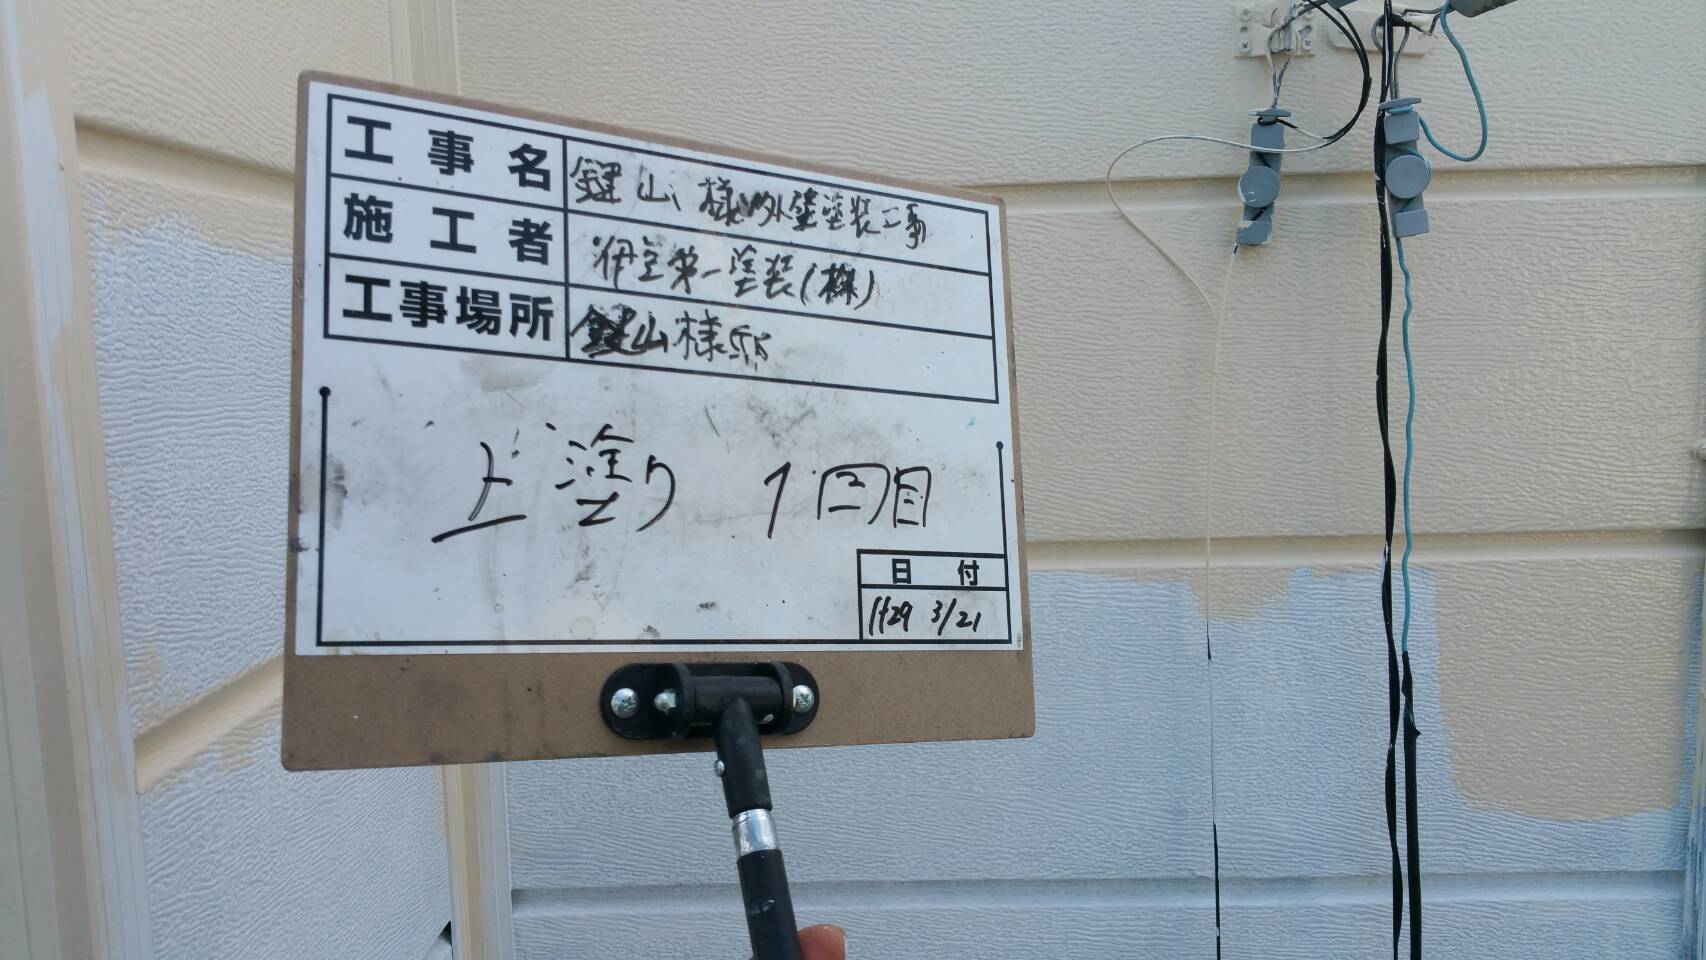 工事名 鍵山様外壁塗装工事
施工者 伊豆第一塗装(株)
工事場所 鍵山様邸
上塗り 1回目
日付
H29 3/21